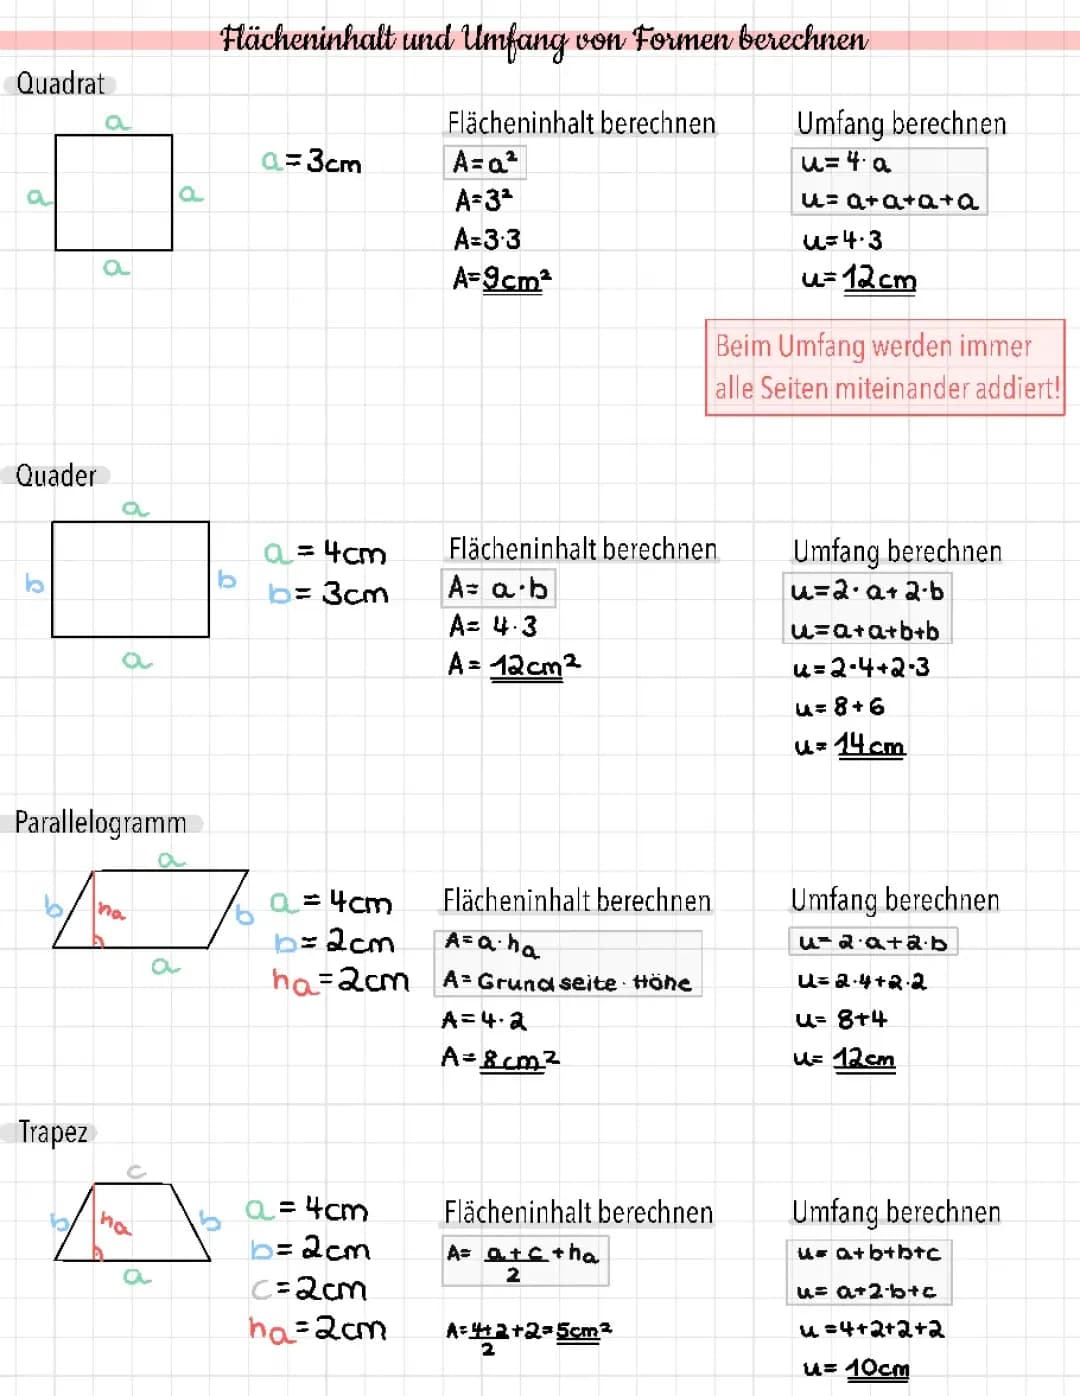 Flächeninhalt und Umfang von Formen berechnen
Quadrat
a
a
a
a
a=3cm
Flächeninhalt berechnen
A=a²
A=3²
A=3·3
A=9cm²
Umfang berechnen
u=4·a
u=a+a+a+a
u=4·3
u=12cm
Beim Umfang werden immer
alle Seiten miteinander addiert!
Quader
a
b
b
a
a=4cm
b=3cm
Flächeninhalt berechnen
A=a·b
A=4·3
A=12cm²
Umfang berechnen
u=2·a+2·b
u=a+a+b+b
u=2·4+2·3
u=8+6
u=14cm
Parallelogramm
a
b
ha
b
a
a=4cm
b=2cm
ha=2cm
Flächeninhalt berechnen
A=a·ha
A=Grundseite·Höhe
A=4·2
A=8cm²
Umfang berechnen
u=2·a+2·b
u=2·4+2·2
u=8+4
u=12cm
Trapez
c
b
ha
b
a
a=4cm
b=2cm
c=2cm
ha=2cm
Flächeninhalt berechnen
A=a+c+ha
2
A=4+2+2=5cm²
2
Umfang berechnen
u=a+b+b+c
u=a+2·b+c
u=4+2+2+2
u=10cm